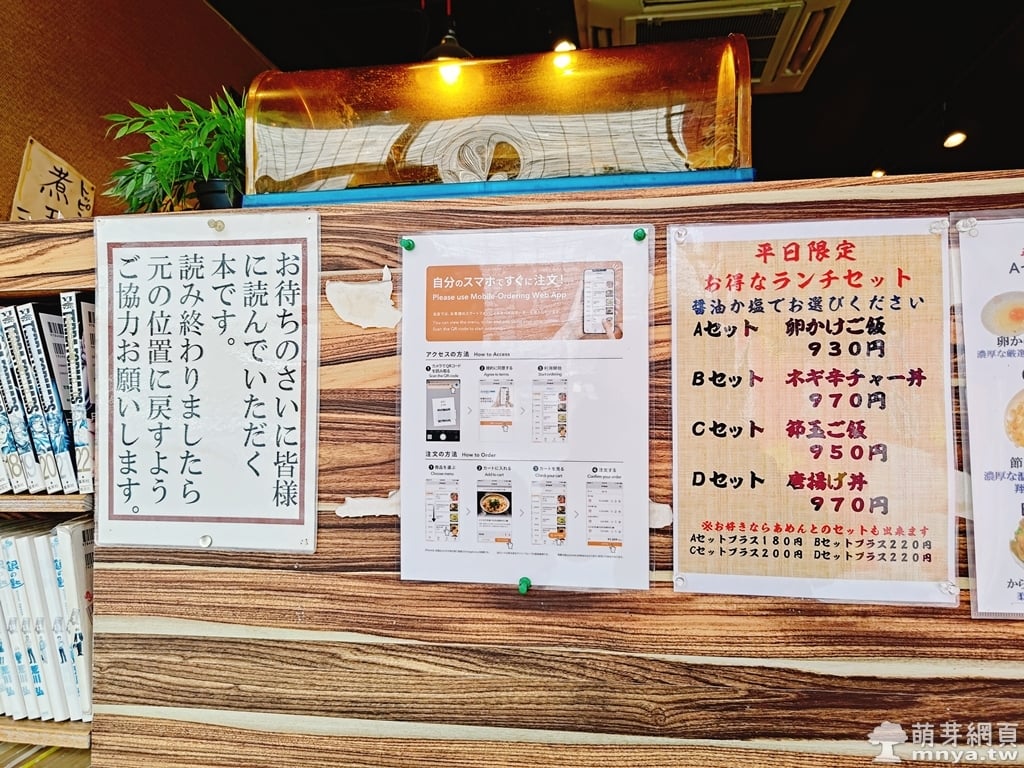 お待ちのさいに皆様
に読んでいただく
本です。
読み終わりましたら
元の位置に戻すよう
ご協力お願いします。
自分のスマホですぐに注文!
Please use Mobile-Ordering Web App
アクセスの方法 How to Access
1 カメラでQRコードを読み取る
Scan the QR code
2 規約に同意する
Agree to terms
3 利用開始
Start ordering
注文の方法 How to Order
1 商品を選ぶ
Choose menu
2 カートに入れる
Add to cart
3 カートを見る
Check your cart
4 注文する
Confirm your order
平日限定
お得なランチセット
醤油か塩でお選びください
Aセット 卵かけご飯
930円
Bセット ネギ辛チャー丼
970円
Cセット 節玉ご飯
950円
Dセット 唐揚げ丼
970円
※お好きならあめんとのセットも出来ます
Aセットプラス180円 Bセットプラス220円
Cセットプラス200円 Dセットプラス220円
卵か
濃厚な厳選
節
から
煮
18
19
20
22
荒川弘
萌芽網頁
mnya.tw